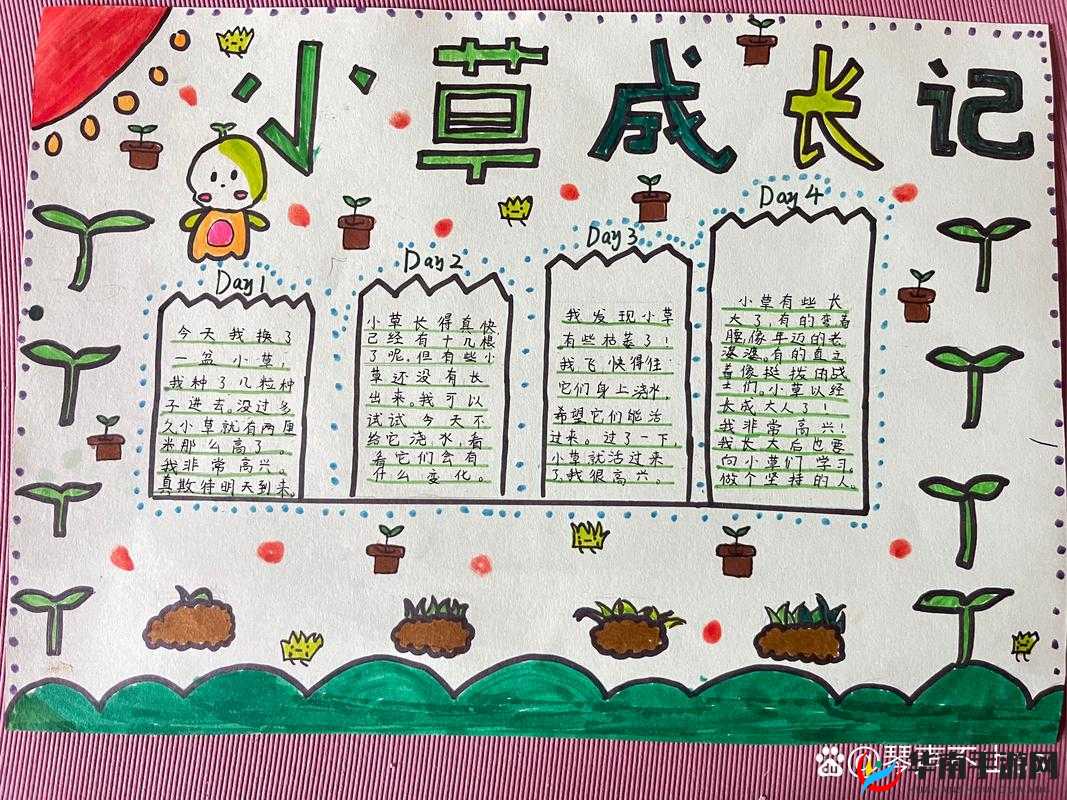 小草成长记
Day1
今天我换了
一盆小草,
我种了几粒种
子进去。没过多
久小草就有两厘
米那么高了。
我非常高兴。
真期待明天到来。
Day2
小草长得真快
已经有十几根
了呢,但有些小
草还没有长
出来。我可以
试试今天不
给它浇水,看
看它们会有
什么变化。
Day3
我发现小草
有些枯萎了!
我飞快得往
它们身上浇水,
希望它们能活
过来。过了一下,
小草就活过来
了,我很高兴。
Day4
小草有些长
大了,有的弯着
腰,像年迈的老
婆婆。有的直立
着像挺拨的战
士们。小草以经
长成大人了!
我非常高兴!
我长大后也要
向小草们学习,
做个坚持的人。
华南手游网